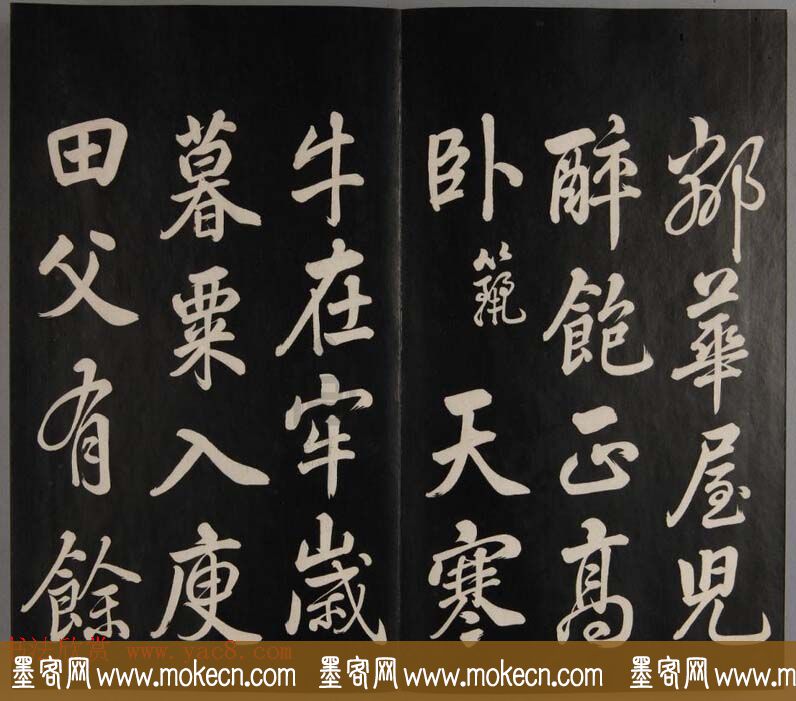 華屋兒
醉飽正高
臥 天寒
牛在牢歲
暮粟入庾
田父有餘
书法欣赏 www.yac8.com
墨客网 www.mokecn.com 墨客网 www.mokecn.com 墨客网 www.m